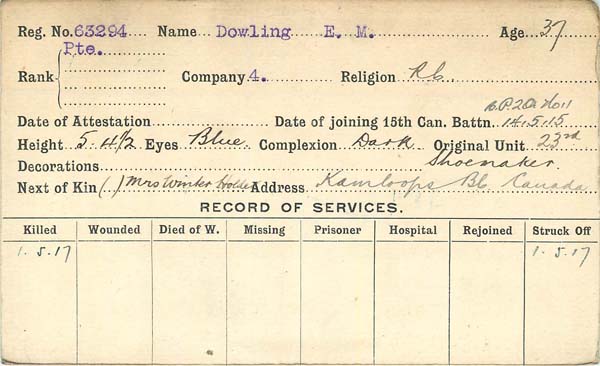 Reg. No. 63294 Name Dowling E. M. Age 37
Pte.
Rank Company 4. Religion R.C.
Date of Attestation Date of joining 15th Can. Battn. 14.5.15
Height 5.4½ Eyes Blue. Complexion Dark Original Unit 23rd
Decorations Shoemaker.
Next of Kin ( ) Mrs Address Kamloops Bc, Canada
RECORD OF SERVICES.
Killed Wounded Died of W. Missing Prisoner Hospital Rejoined Struck Off
1.5.17 1.5.17